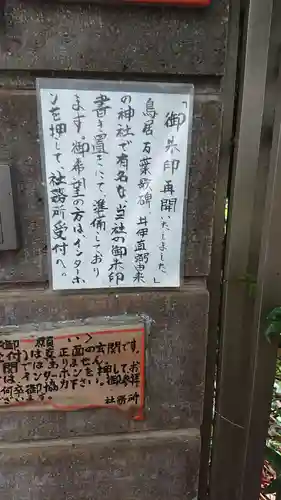 「御朱印再開いたしました。」
鳥居 万葉歌碑 井伊直弼由来
の神社で有名な当社の御朱印
書き置きにて、準備しており
ます。御希望の方は、インターホ
ンを押して、社務所受付へ。
御願い
受付)は真正面の玄関です。
関ではありません
はインターホンを押して、お
何卒御協力下さい。御参拝
社務所